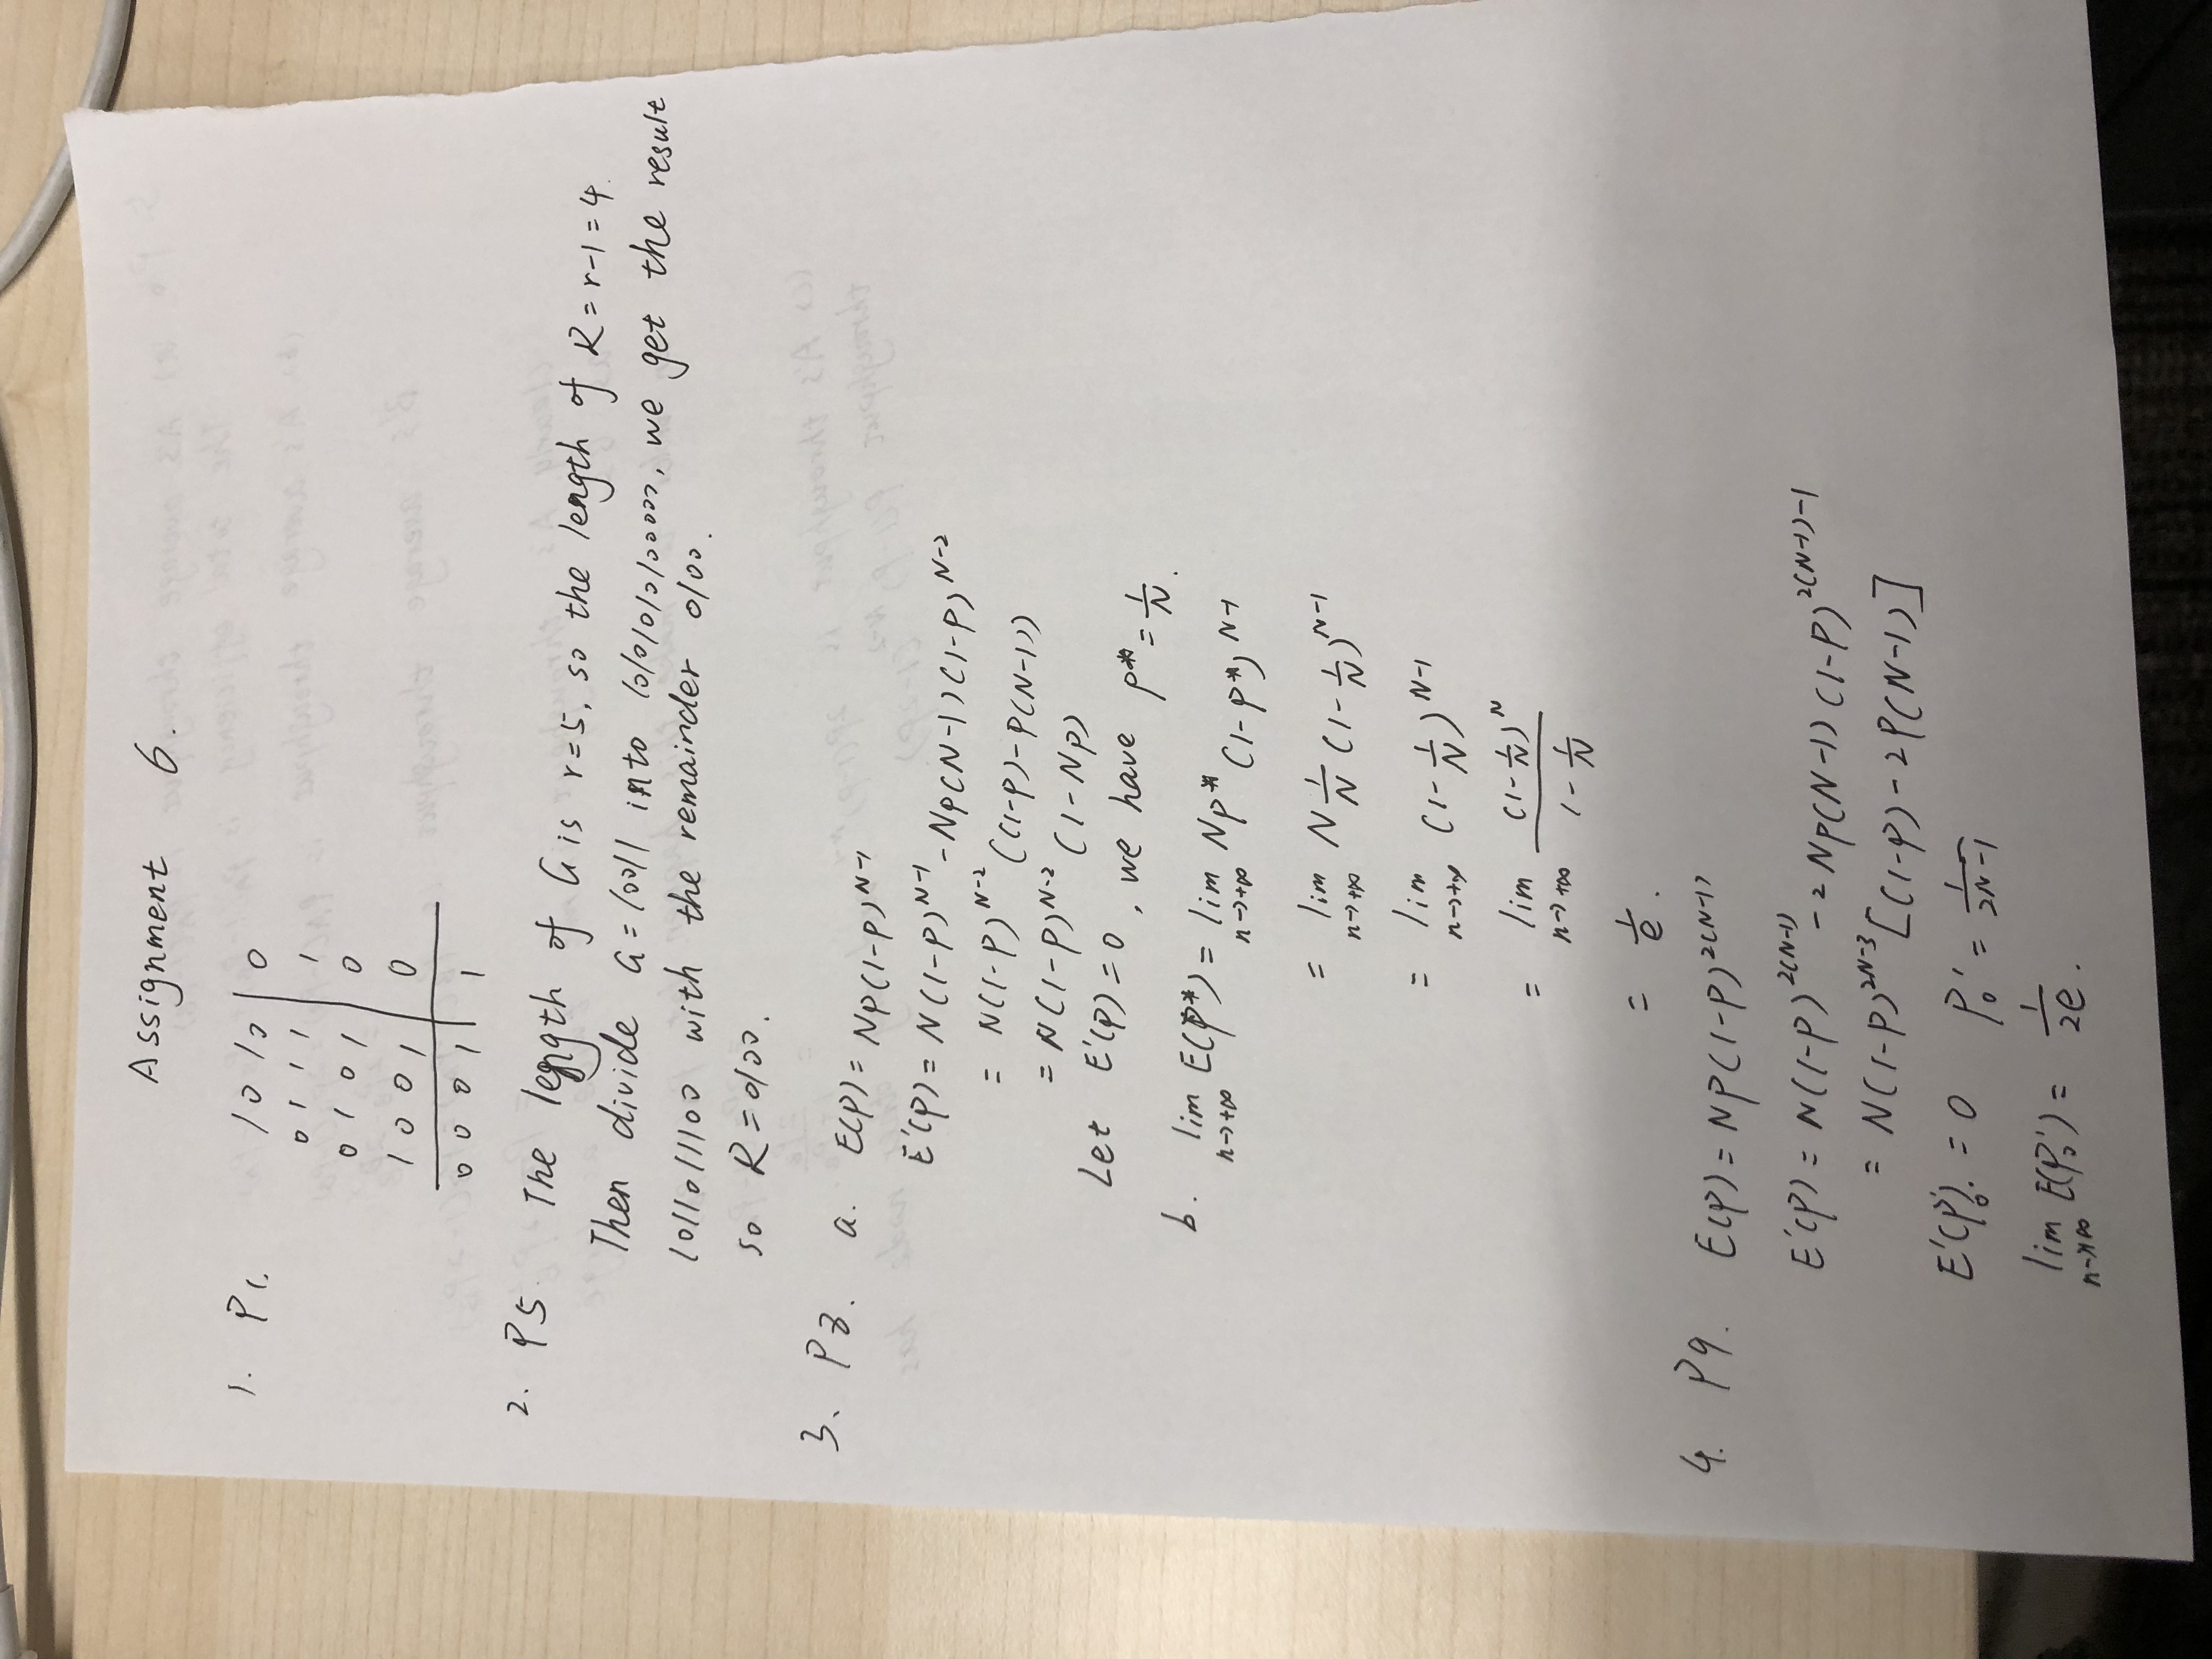 Assignment 6.
1. P1. 1010 | 0
0111 | 1
0101 | 0
1001 | 0
0001 | 1
2. P5 The length of G is r=5, so the length of R=r-1=4.
Then divide G=10011 into 10101010100000, we get the result
1011011100 with the remainder 0100.
so R=0100.
3、 P8. a. E(p)=Np(1-p)^{N-1}
E'(p)=N(1-p)^{N-1}-Np(N-1)(1-p)^{N-2}
=N(1-p)^{N-2}((1-p)-p(N-1))
=N(1-p)^{N-2}(1-Np)
Let E'(p)=0, we have p*=1/N.
b. lim n→+∞ E(p*)=lim n→+∞ Np*(1-p*)^{N-1}
=lim n→+∞ N 1/N (1-1/N)^{N-1}
=lim n→+∞ (1-1/N)^{N-1}
=lim n→+∞ (1-1/N)^N / 1-1/N
=1/e.
4. P9. E(p)=Np(1-p)^{2(N-1)}
E'(p)=N(1-p)^{2(N-1)}-2Np(N-1)(1-p)^{2(N-1)-1}
=N(1-p)^{2N-3}[(1-p)-2p(N-1)]
E'(p0').=0 p0'=1/2N-1
lim n→+∞ E(p0')=1/2e.